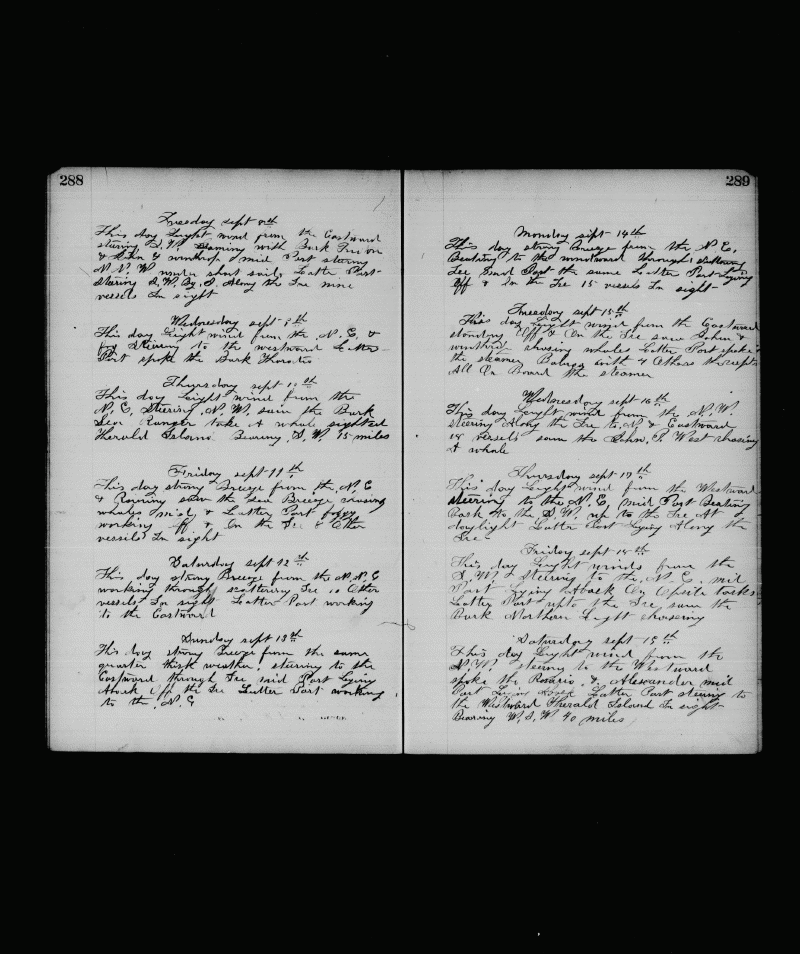 288
Tuesday sept 8th
This day Light wind from the Eastward
stering S. W. with Bark
& John & winthrop mid Part stering
N. N. W under short sail Latter Part
stering S. W. By. S. Along the Ice nine
vessels In sight
Wednesday sept 9th
This day Light wind from the N. E. &
fog stering to the westward Latter
Part spoke the Bark Horatio
Thursday sept 10th
This day Leight wind from the
N. E. Steering N. W. saw the Bark
Sea Ranger take A whale sighted
Herald Island Bearing S. W. 15 miles
Friday sept 11th
This day strong Breeze from the N. E
& Raining saw the Sea Breeze chasing
whales mid & Latter Part foggy
working off & On the Ice 8 Other
vessels In sight
Saturday sept 12th
This day strong Breeze from the N. N. E
working through scattering Ice 10 Other
vessels In sight Latter Part working
to the Eastward
Sunday sept 13th
This day strong Breeze from the same
quarter thick weather sterring to the
Eastward through Ice mid Part Lying
Aback in the Ice Latter Part working
to the N. E
289
Monday sept 14th
This day strong Breeze from the N. E.
Beating to the windward through scattering
Ice mid Part the same Latter Part Lying
Off & On the Ice 15 vessels In sight
Tuesday sept 15th
This day Light wind from the Eastward
standing Off & On the Ice saw John &
winthrop chasing whales Latter Part spoke
the steamer Balaena with 4 Others the capts
All On Board the steamer
Wednesday sept 16th
This day Leight wind from the N. W.
steering Along the Ice to N & Eastward
18 vessels saw the John. P West chasing
A whale
Thursday sept 17th
This day Light wind from the Westward
steering to the N. E. mid Part Beating
Back to the S. W. up to the Ice At
daylight Latter Part Lying Along the
Ice
Friday sept 18th
This day Leight winds from the
S. W. & steering to the N. E. mid
Part Lying Aback On Opsite tacks
Latter Part upto the Ice saw the
Bark Northern Light
Saturday sept 15th
This day Light wind from the
N. W. steering to the Westward
spoke the Rosario & Alexander mid
Part Lying Aback Latter Part steering to
the Westward Herald Island In sight
Bearing W. S. W 40 miles